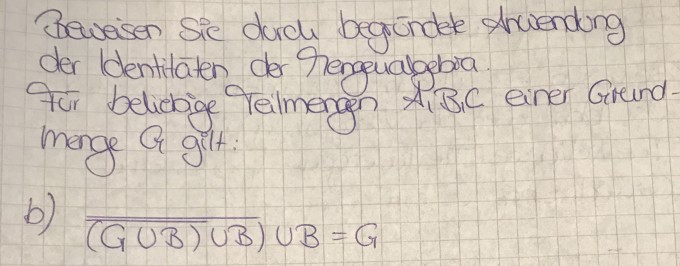 Beweisen Sie durch begründete Anwendung
der Identitäten der Mengenalgebra.
Für beliebige Teilmengen A,B,C einer Grund-
menge G gilt:
b) \overline{\overline{(G∪B)}∪B)}∪B = G